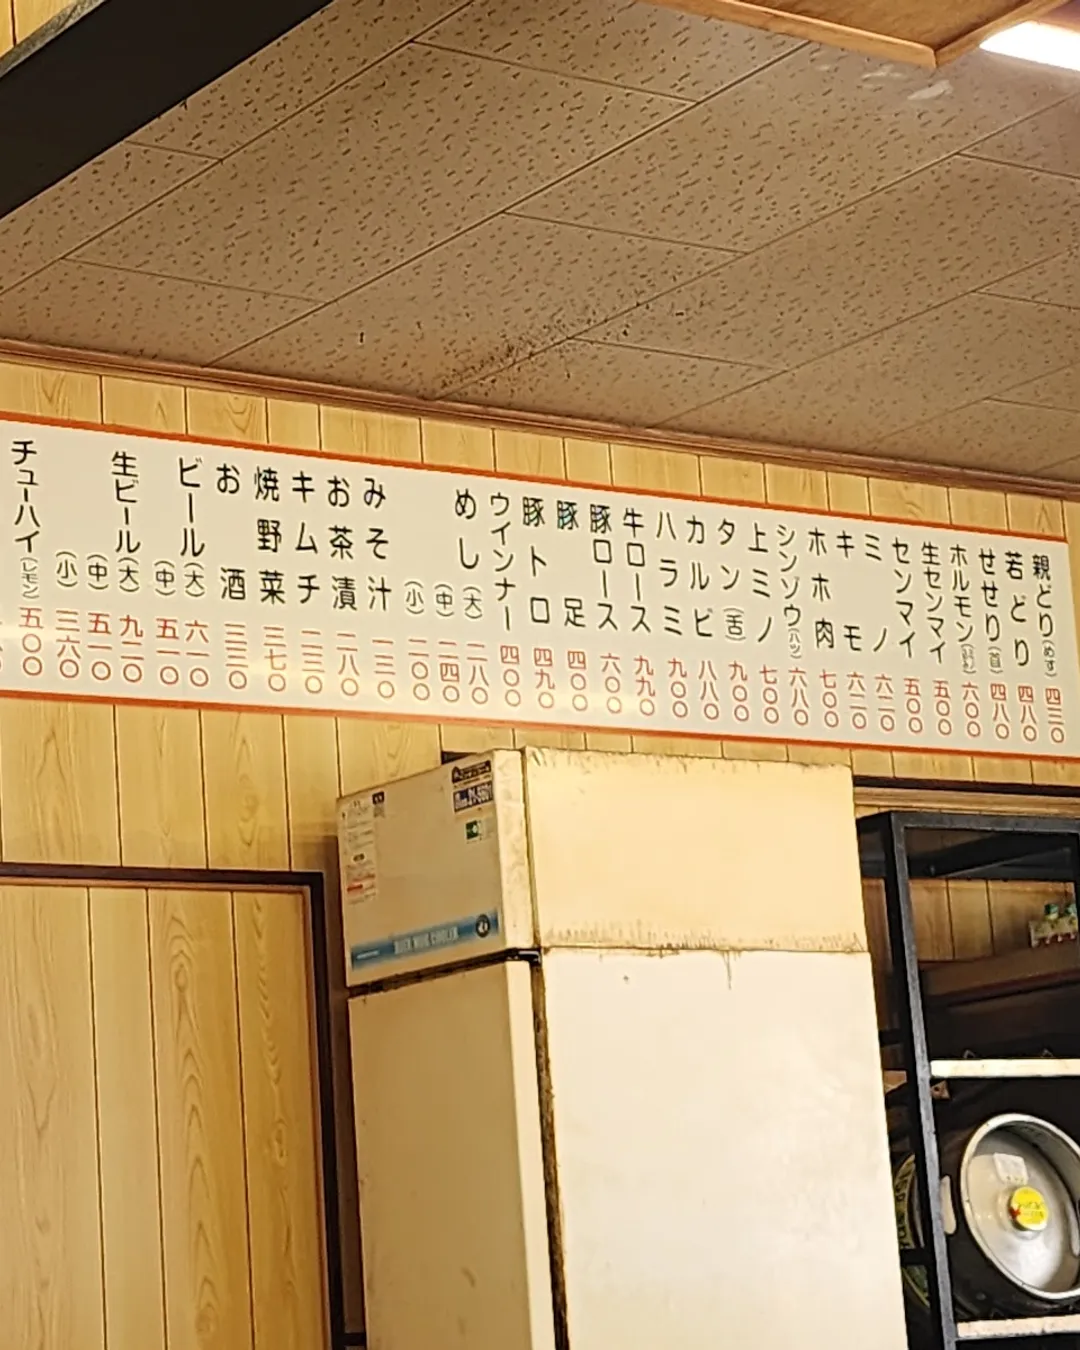 親どり(めす) 四三〇
若どり 四八〇
せせり(首) 四八〇
ホルモン 六〇〇
生センマイ 五〇〇
センマイ 五〇〇
ミノ 六二〇
キモ 六二〇
ホホ肉 七〇〇
シンゾウ(ハツ) 六八〇
上ミノ 七〇〇
タン(舌) 九〇〇
カルビ 八八〇
ハラミ 九〇〇
牛ロース 九九〇
豚ロース 六〇〇
豚足 四〇〇
豚トロ 四九〇
ウインナー 四〇〇
めし(大) 二八〇
(中) 二四〇
(小) 二〇〇
みそ汁 一三〇
お茶漬 二八〇
キムチ 二三〇
焼野菜 三七〇
お酒 三三〇
ビール(大) 六一〇
(中) 五一〇
生ビール(大) 九二〇
(中) 五一〇
(小) 三六〇
チューハイ(レモン) 五〇〇
BEER MUG COOLER